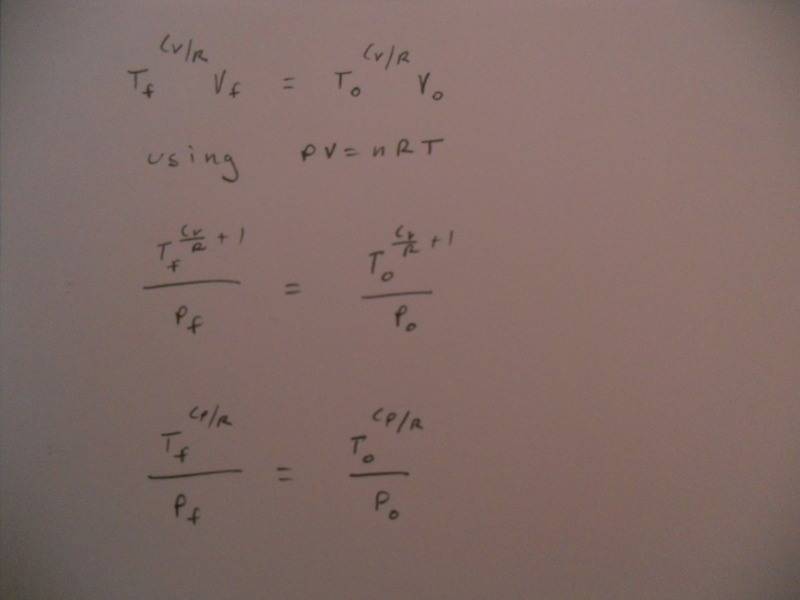 T_f^{Cv/R} V_f = T_o^{Cv/R} V_o
using PV = nRT
\frac{T_f^{\frac{Cv}{R} + 1}}{P_f} = \frac{T_o^{\frac{Cv}{R} + 1}}{P_o}
\frac{T_f^{CP/R}}{P_f} = \frac{T_o^{CP/R}}{P_o}